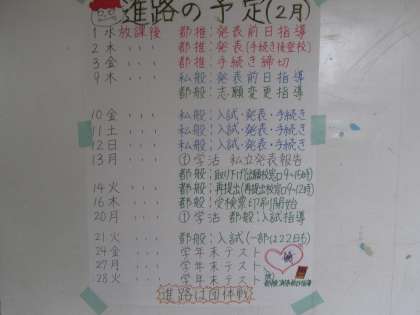 進路の予定(2月)
1 水 放課後 都推:発表前日指導
2 木 ・・・ 都推:発表(手続き後登校)
3 金 ・・・ 都推:手続き締切
9 木 ・・・ 私般:発表前日指導
都般:志願変更指導
10 金 ・・・ 私般:入試・発表・手続き
11 土 ・・・ 私般:入試・発表・手続き
12 日 ・・・ 私般:入試・発表・手続き
13 月 ・・・ ①学活 私立発表報告
都般:取り下げ(出願校窓口9〜15時)
14 火 ・・・ 都般:再提出(再提出校窓口9〜12時)
16 木 ・・・ 都般:受検票印刷開始
20 月 ・・・ ①学活 都般:入試指導
21 火 ・・・ 都般:入試(一部は22日も)
24 金 ・・・ 学年末テスト
27 月 ・・・ 学年末テスト
28 火 ・・・ 学年末テスト
進路は団体戦